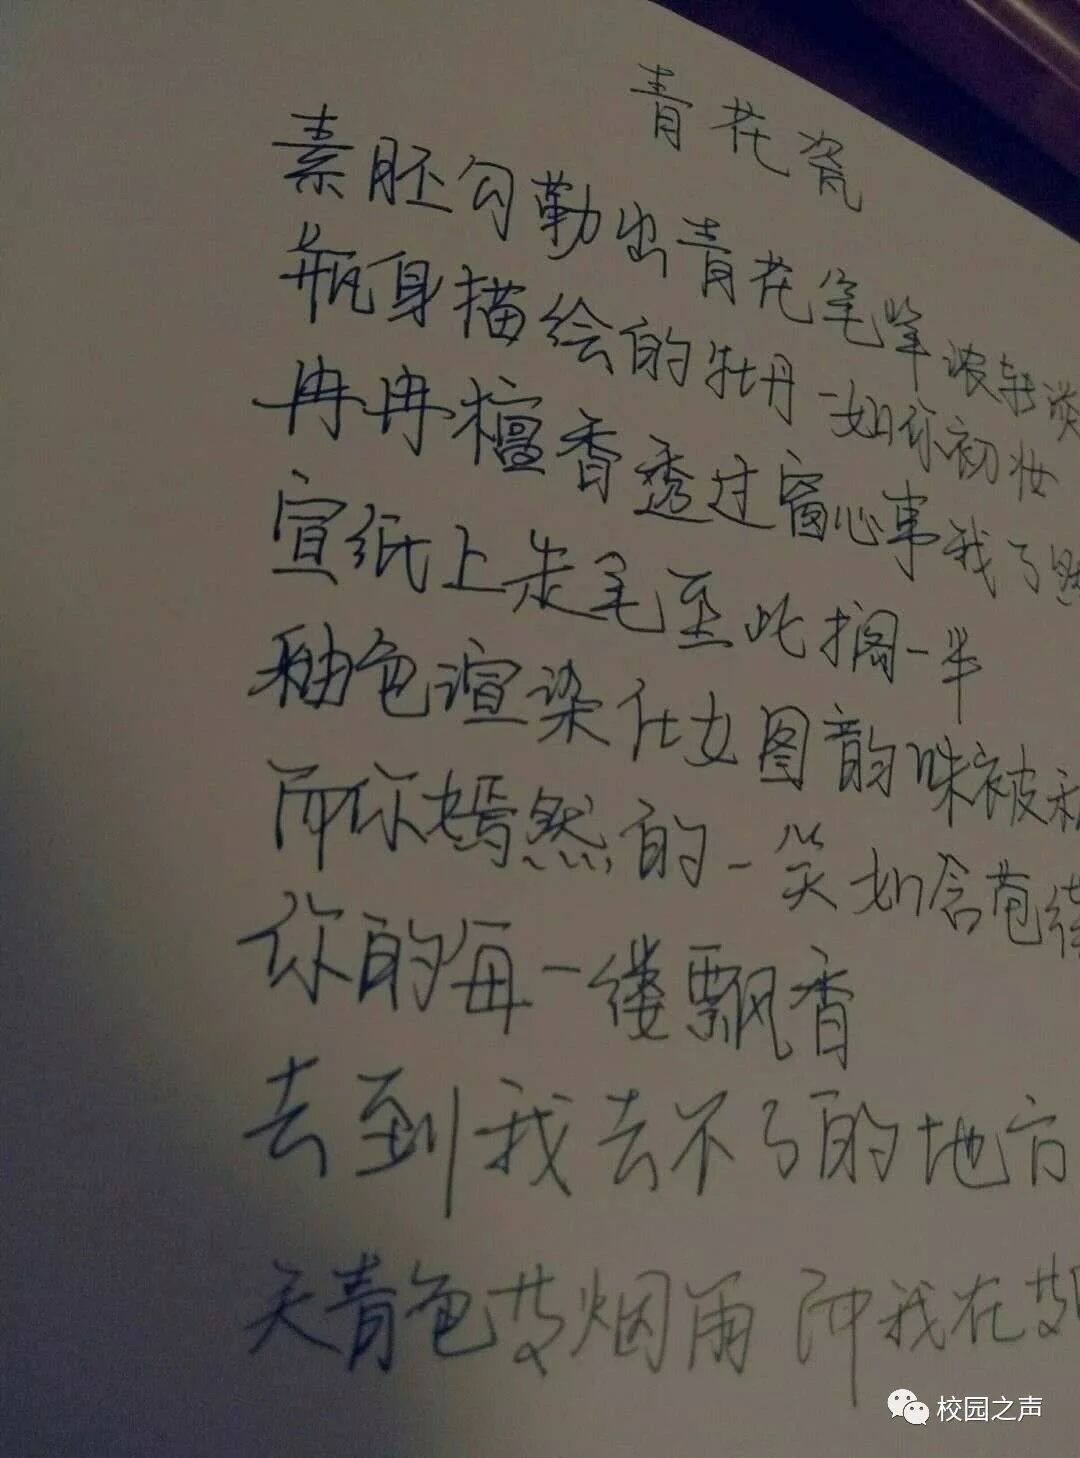 青花瓷
素胚勾勒出青花笔峰浓转淡
瓶身描绘的牡丹一如你初妆
冉冉檀香透过窗心事我了然
宣纸上走笔至此搁一半
釉色渲染仕女图韵味被私
而你嫣然的一笑如含苞待
你的每一缕飘香
去到我去不了的地方
天青色等烟雨 而我在等
校园之声